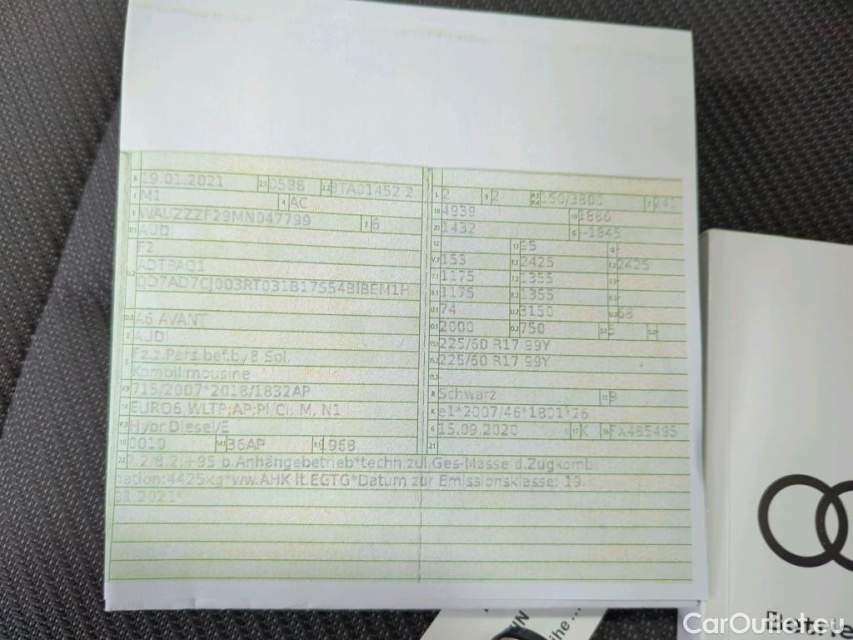 19.01.2021 0588 ITA01452 2
M1 AC
WAUZZZF29MN047799 6
AUDI
F2
ADTPAQ1
QD7AD7CJ003RT031B17S54BIBEM1H
A6 AVANT
AUDI
Fz.z.Pers.bef.b.8 Spl.
Kombilimousine
715/2007*2018/1832AP
EURO6;WLTP;AP;PI/CI; M, N1
Hybr.Diesel/E
0010 36AP 1968
2 2 150/3800 241
4939 1886
1432 -1845
65
153 2425 2425
1175 1355
1175 1355
74 3150 68
2000 750 5
225/60 R17 99Y
225/60 R17 99Y
Schwarz 9
e1*2007/46*1801*26
15.09.2020 K FX485495
Anhängebetrieb*techn.zul.Ges-Masse d.Zugkombi
nation:4425kg*ww.AHK lt.EGTG*Datum zur Emissionsklasse: 19.
01.2021*
CarOutlet.eu